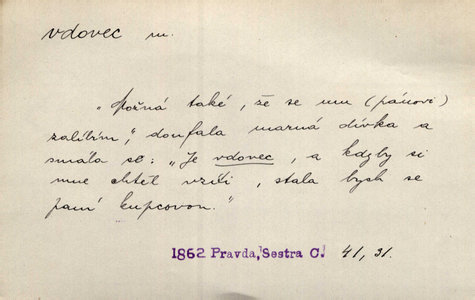 vdovec m.
„Možná také, že se mu (pánovi)
zalíbím," doufala marná dívka a
smála se: „Je vdovec, a kdyby si
mne chtěl vzíti, stala bych se
paní kupcovou."
1862 Pravda, Sestra C. 41, 31.